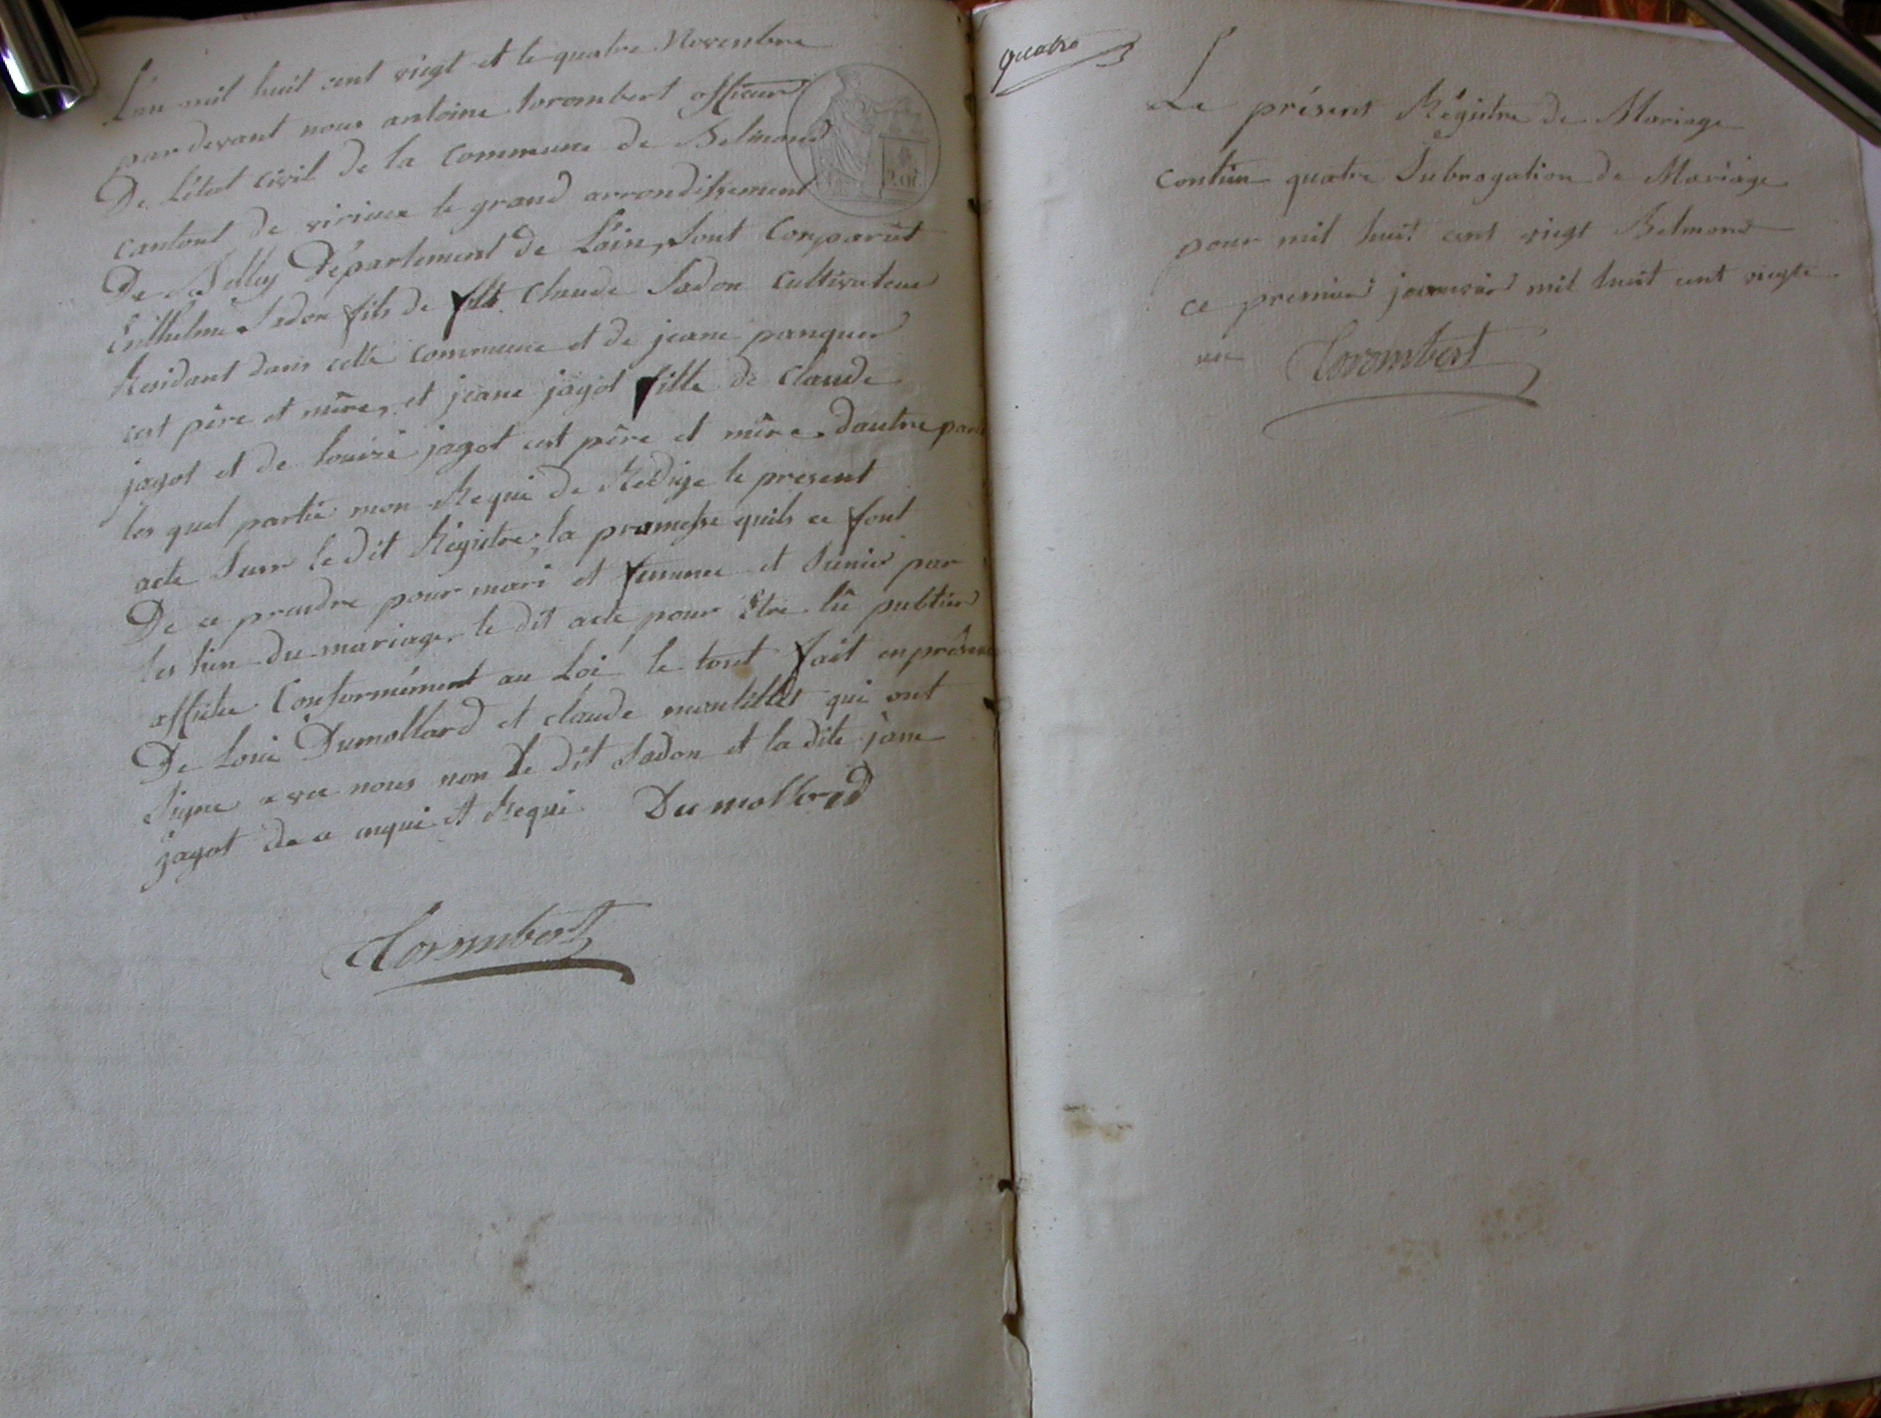 L'an mil huit cent vingt et le quatre Novembre
pardevant nous antoine torombert officier
De l'état civil de la commune de Belmond
cantont de virieux le grand arrondissement
De Belley Département de L'ain, sont Comparut
Enthelme Sadon fils de Claude Sadon Cultivateur
Residant dans cette commune et de jeane panquer
cest père et mère, et jeane jagot fille de Claude
jagot et de Louise jagot cest père et mère. dautre part
les quel partie mon Requi de Rédige le present
acte Surr le dit Régistre, la promesse quils ce font
De ce prandre pour mari et femme et Sunir par
les lien du mariage. le dit acte pour être lû publier
affiche Conformément au Loi le tout fait en présence
De Loui Dumollard et claude montillet qui ont
Signe avec nous non le dit Sadon et la dite jane
jagot de ce enqui et Requi. Dumollard
Torombert
quatre
Le présent Régistre de Mariage
contien quatre Subrogation de Mariage
pour mil huit cent vingt Belmond
ce premier janvier mil huit cent vingte
un Torombert